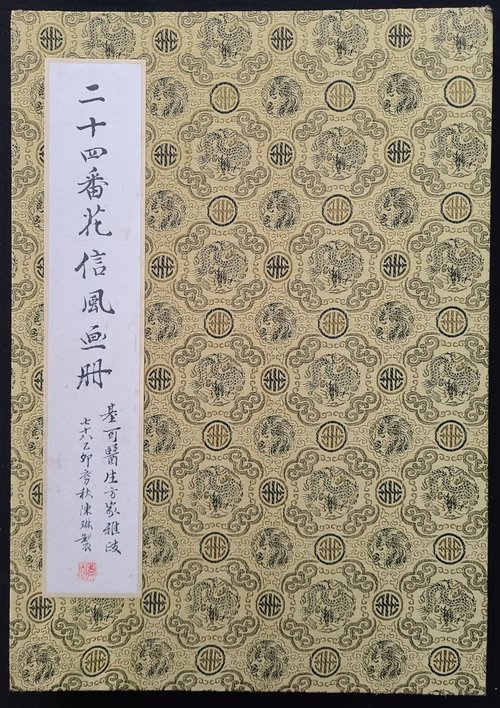 二十四番花信風画册
基可醫生方家雅政
七十八己卯秋陳琳製